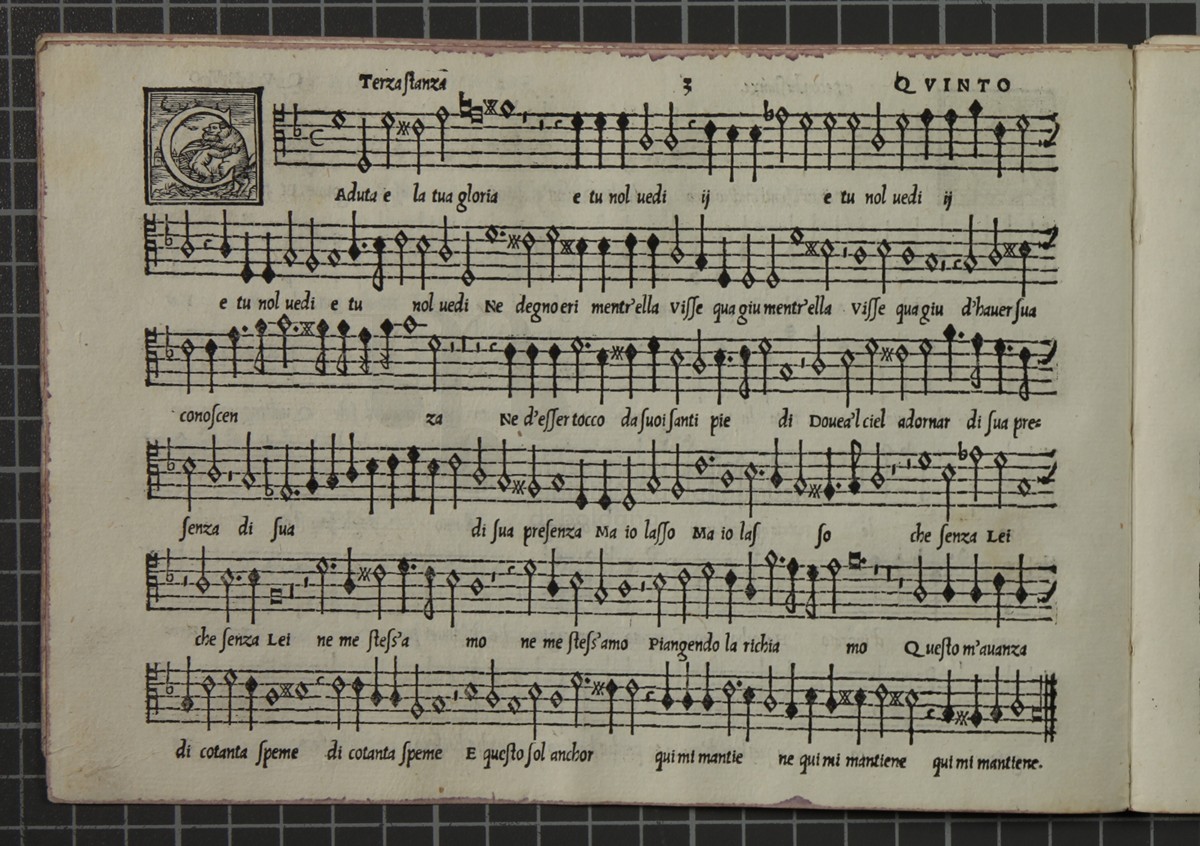 Terza ſtanza 3 QVINTO
CAduta e la tua gloria e tu nol uedi ij e tu nol uedi ij
e tu nol uedi e tu nol uedi Ne degno eri mentr'ella viſſe qua giu mentr'ella viſſe qua giu d'hauer ſua
conoſcen za Ne d'eſſer tocco da ſuoi ſanti pie di Douea'l ciel adornar di ſua pre=
ſenza di ſua di ſua preſenza Ma io laſſo Ma io laſ ſo che ſenza Lei
che ſenza Lei ne me ſteſs'a mo ne me ſteſs'amo Piangendo la richia mo Queſto m'auanza
di cotanta ſpeme di cotanta ſpeme E queſto ſol anchor qui mi mantie ne qui mi mantiene qui mi mantiene.